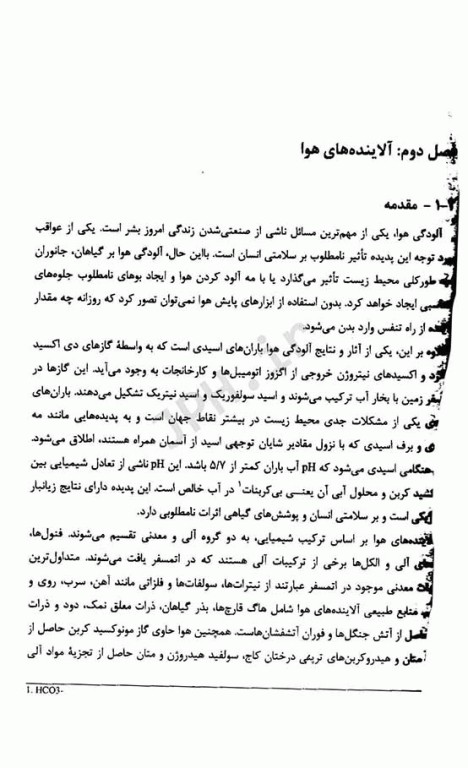 فصل دوم: آلاینده‌های هوا
۲-۱- مقدمه
آلودگی هوا، یکی از مهم‌ترین مسائل ناشی از صنعتی‌شدن زندگی امروز بشر است. یکی از عواقب
مورد توجه این پدیده تأثیر نامطلوب بر سلامتی انسان است. بااین حال، آلودگی هوا بر گیاهان، جانوران
طورکلی محیط زیست تأثیر می‌گذارد یا با مه آلود کردن هوا و ایجاد بوهای نامطلوب جلوه‌های
ایجاد خواهد کرد. بدون استفاده از ابزارهای پایش هوا نمی‌توان تصور کرد که روزانه چه مقدار
از راه تنفس وارد بدن می‌شود.
علاوه بر این، یکی از آثار و نتایج آلودگی هوا باران‌های اسیدی است که به واسطهٔ گازهای دی اکسید
و اکسیدهای نیتروژن خروجی از اگزوز اتومبیل‌ها و کارخانجات به وجود می‌آید. این گازها در
زمین با بخار آب ترکیب می‌شوند و اسید سولفوریک و اسید نیتریک تشکیل می‌دهند. باران‌های
یکی از مشکلات جدی محیط زیست در بیشتر نقاط جهان است و به پدیده‌هایی مانند مه
و برف اسیدی که با نزول مقادیر شایان توجهی اسید از آسمان همراه هستند، اطلاق می‌شود.
هنگامی اسیدی می‌شود که pH آب باران کمتر از ۵/۷ باشد. این pH ناشی از تعادل شیمیایی بین
کربن و محلول آبی آن یعنی بی‌کربنات۱ در آب خالص است. این پدیده دارای نتایج زیانبار
است و بر سلامتی انسان و پوشش‌های گیاهی اثرات نامطلوبی دارد.
آلاینده‌های هوا بر اساس ترکیب شیمیایی، به دو گروه آلی و معدنی تقسیم می‌شوند. فنول‌ها،
آلی و الکل‌ها برخی از ترکیبات آلی هستند که در اتمسفر یافت می‌شوند. متداول‌ترین
معدنی موجود در اتمسفر عبارتند از نیترات‌ها، سولفات‌ها و فلزاتی مانند آهن، سرب، روی و
منابع طبیعی آلاینده‌های هوا شامل هاگ قارچ‌ها، بذر گیاهان، ذرات معلق نمک، دود و ذرات
حاصل از آتش جنگل‌ها و فوران آتشفشان‌هاست. همچنین هوا حاوی گاز مونوکسید کربن حاصل از
متان و هیدروکربن‌های ترپنی درختان کاج، سولفید هیدروژن و متان حاصل از تجزیهٔ مواد آلی
1. HCO3-
JPH.ir